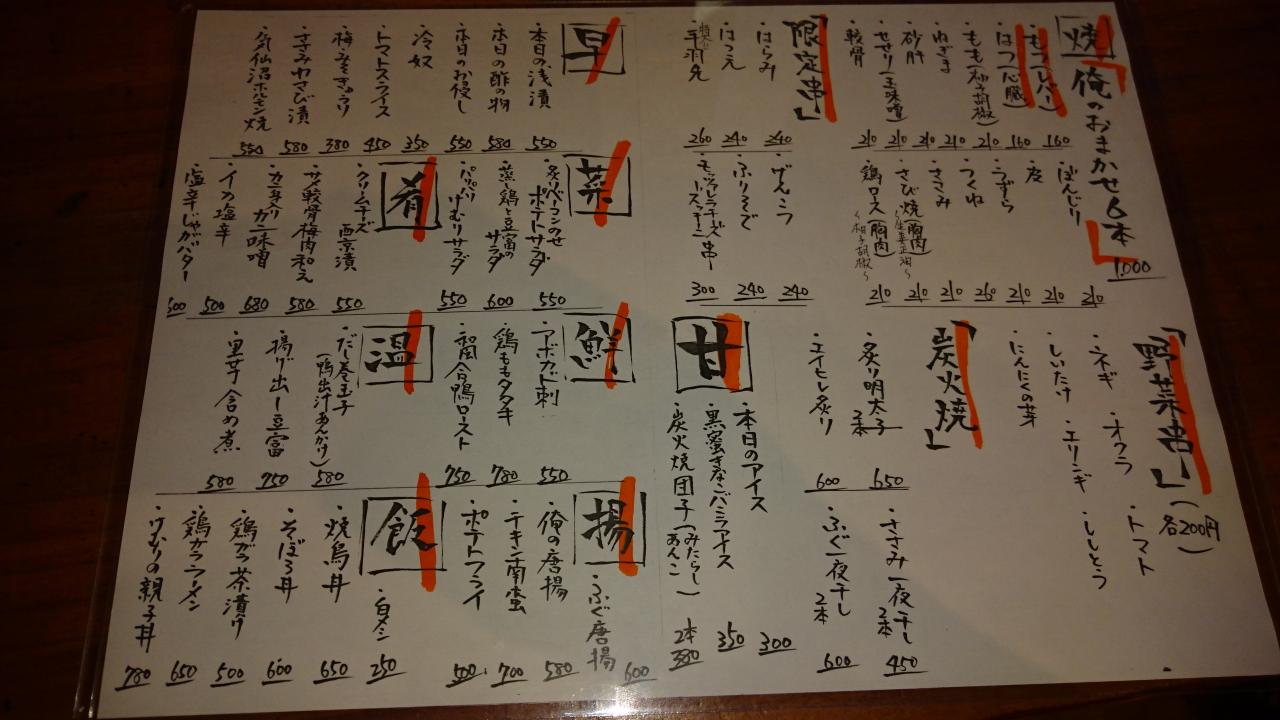 焼
俺のおまかせ6本
1,000
・もつ(レバー)
160
・はつ(心臓)
160
・もも(柚子胡椒)
210
・ねぎま
210
・砂肝
210
・せせり(玉味噌)
210
・軟骨
210
・ぼんじり
210
・皮
210
・うずら
210
・つくね
260
・ささみ
210
・さび焼(胸肉)
210
・鶏ロース(胸肉)
~柚子胡椒~
210
「限定串」
・はらみ
240
・はつ元
240
・手羽先
260
・げんこつ
240
・ふりそで
240
・モッツァレラチーズ
串
300
「野菜串」(各200円)
・ネギ ・オクラ ・トマト
・しいたけ ・エリンギ ・ししとう
・にんにくの芽
「炭火焼」
・炙り明太子
2本
650
・エイヒレ炙り
600
・ささみ一夜干し
2本
450
・ふぐ一夜干し
2本
600
甘
・本日のアイス
300
・黒蜜きなこバニラアイス
350
・炭火焼団子(みたらし
あんこ)
2本
380
早
・本日の浅漬
550
・本日の酢の物
580
・本日のお浸し
550
・冷奴
350
・トマトスライス
450
・梅みそきゅうり
380
・ささみわさび漬
580
・気仙沼ホルモン焼
550
菜
・炙りベーコンのせ
ポテトサラダ
550
・蒸し鶏と豆富の
サラダ
600
・パリパリ
けむりサラダ
550
肴
・クリームチーズ
西京漬
550
・サメ軟骨梅肉和え
580
・カニ身入りカニ味噌
680
・イカ塩辛
500
・塩辛じゃがバター
600
鮮
・アボカド刺
550
・鶏ももタタキ
780
・和風合鴨ロースト
750
温
・だし巻玉子
(鴨出汁あんかけ)
580
・揚げ出し豆富
750
・里芋含め煮
580
揚
・ふぐ唐揚
600
・俺の唐揚
580
・チキン南蛮
700
・ポテトフライ
500
飯
・白メシ
250
・焼鳥丼
650
・そぼろ丼
600
・鶏ガラ茶漬け
500
・鶏ガラーメン
650
・けむりの親子丼
780